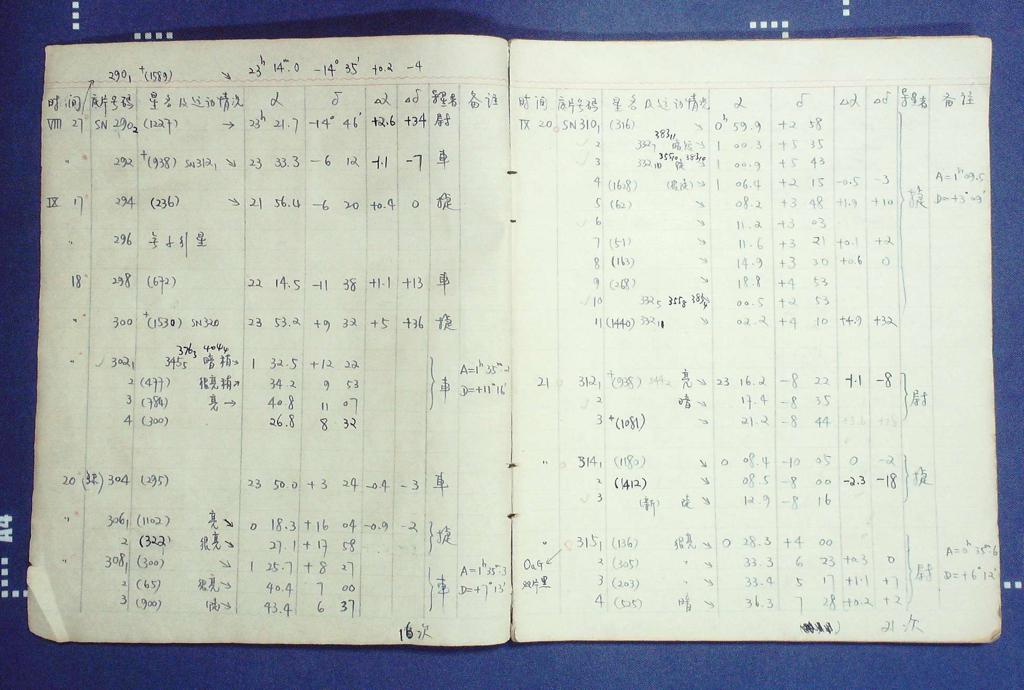 290₁ +(1589) ↘ 23ʰ 14ᵐ.0 -14° 35' +0.2 -4
时间 底片号码 星名及运动情况 α δ Δα Δδ 备注
VIII 27 SN 290₂ (1227) → 23ʰ 21.7 -14° 46' +2.6 +34 尉
" 292 +(938) SN312₁ ↘ 23 33.3 -6 12 -1.1 -7 車
IX 17 294 (236) ↘ 21 56.4 -6 20 +0.4 0
" 296
18 298 (672) 22 14.5 -11 38 +1.1 +13 車
300 +(1530) SN320 23 53.2 +9 32 +5 +36
376₃ 404₄
" 302₁ 345₅ 暗 1 32.5 +12 22
2 (477) 很亮 34.2 9 53
3 (784) 亮 → 40.8 11 07
4 (300) 26.8 8 32
車 A=1ʰ 35ᵐ.2
D=+11°16'
20 304 (295) 23 50.0 +3 24 -0.4 -3 車
" 306₁ (1102) 亮 ↘ 0 18.3 +16 04 -0.9 -2
2 (322) 很亮 ↘ 27.1 +17 58
308₁ (300) ↘ 1 25.7 +8 27
2 (65) 很亮 ↘ 40.4 7 00
3 (900) ↘ 43.4 6 37
車 A=1ʰ 35ᵐ.3
D=+7°13'
16次
时间 底片号码 星名及运动情况 α δ Δα Δδ 备注
IX 20 SN310₁ (316) ↘ 0ʰ 59.9 +2 58
2 332₇ 383₁₁ 1 00.3 +5 35
3 332₁₀ 1 00.9 +5 43
4 (1628) ↘ 1 06.4 +2 15 -0.5 -3
5 (62) ↘ 08.2 +3 48 +1.9 +10
6 11.2 +3 03
7 (51) ↘ 11.6 +3 21 +0.1 +2
8 (163) ↘ 14.9 +3 30 +0.6 0
9 (268) ↘ 18.8 +4 53
10 332₅ 355₈ 00.5 +2 53
11 (1440) 332₁₁ 02.2 +4 10 +4.9 +32
A=1ʰ 09.5
D=+3°09'
21 312₁ +(938) 亮 ↘ 23 16.2 -8 22 -1.1 -8
2 暗 ↘ 17.4 -8 35
3 +(1081) ↘ 21.2 -8 44
尉
" 314₁ (1180) ↘ 0 08.4 -10 05 0 -2
2 (1412) ↘ 08.5 -8 00 -2.3 -18
3 (新) ↘ 12.9 -8 16
" 315₁ (136) 很亮 ↘ 0 28.3 +4 00
2 (305) " ↘ 33.3 6 23 +0.3 0
3 (203) " ↘ 33.4 5 17 +1.1 +7
4 (525) 暗 ↘ 36.3 7 28 +0.2 +2
尉 A=0ʰ 35ᵐ.6
D=+6°12'
OaG
21次